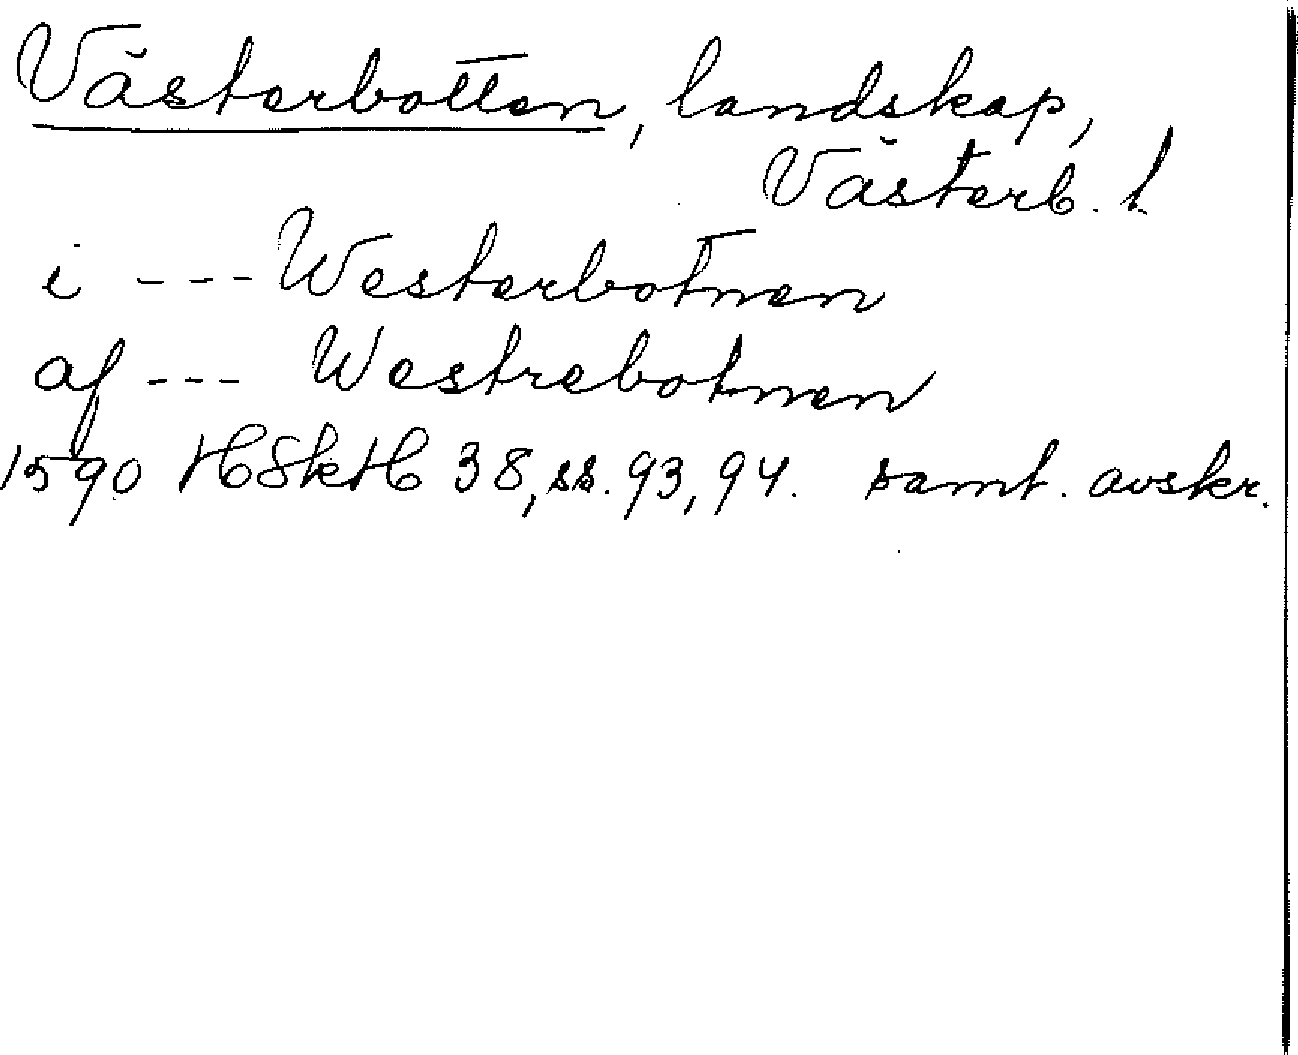 Västerbotten, landskap,
Västerb. l.
i --- Westerbotnen
af --- Westrebotnen
1590 HSkH 38, ss. 93, 94. samt. avskr.